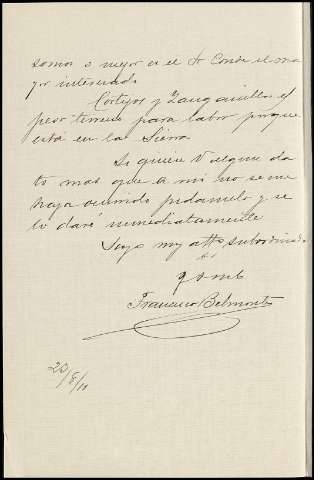 somos o mejor es el Sr Conde el ma
yor interesado
Cortijos y Zanganillos el
peor terreno para labor porque
está en la Sierra
Si quiere V algun da
to mas que a mi no se me
haya ocurrido pidamelo y se
lo daré inmediatamente
Suyo my atto subordinado
q b s m
Francisco Belmonte